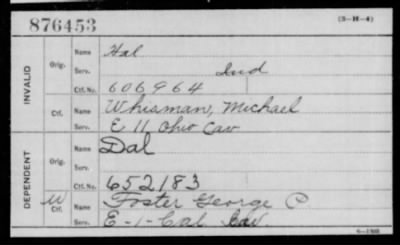 876453 (3-H-4)
INVALID
Orig. Name Hal
Serv. Ind
Ctf. No. 606964
Ctf. Name Whisman, Michael
Serv. E 11 Ohio Cav
DEPENDENT
Orig. Name Dal
Serv.
Ctf. No. 652183
W Ctf. Name Foster George P
Serv. E-1-Cal Cav.